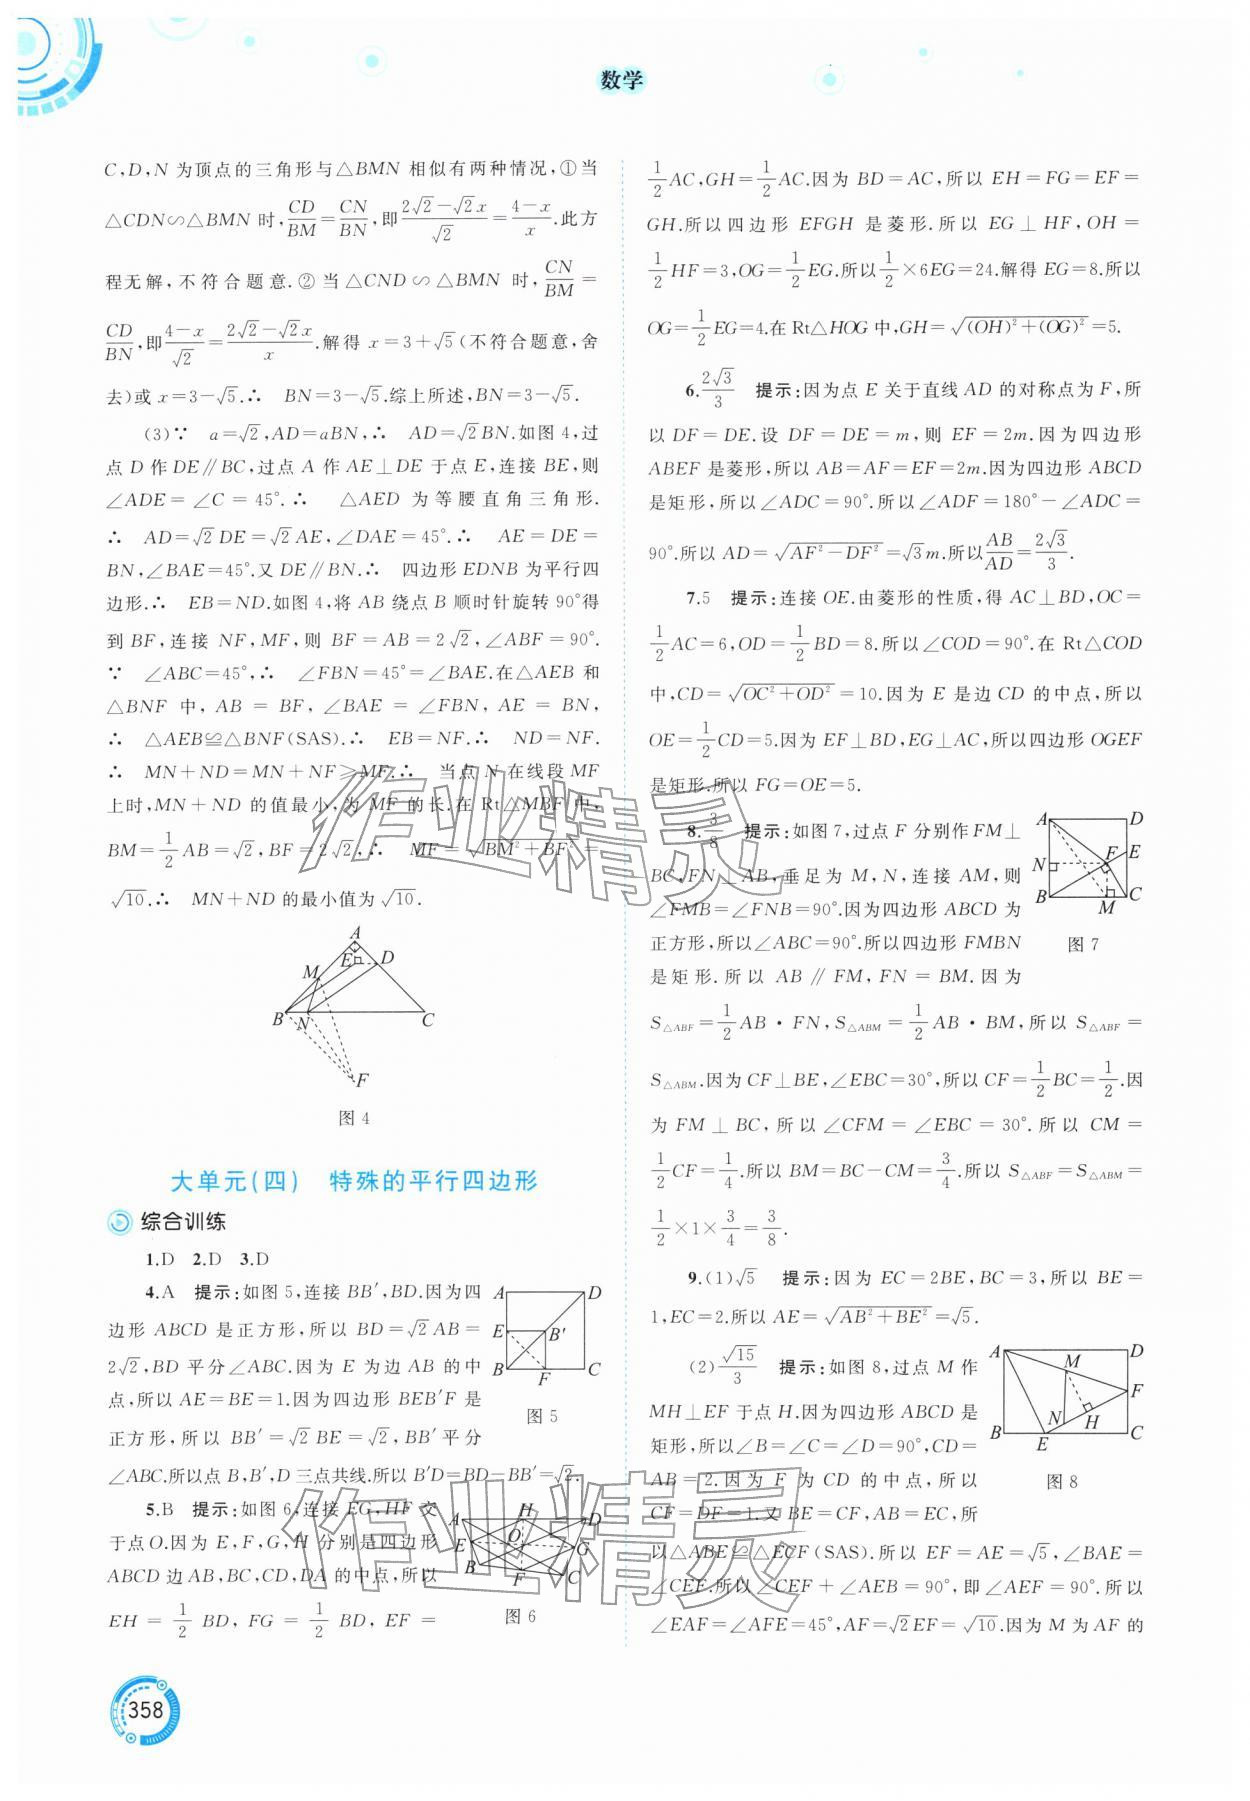 数学
C,D,N 为顶点的三角形与△BMN 相似有两种情况,①当
△CDN∽△BMN 时,CD/BM=CN/BN,即(2√2-√2x)/√2=(4-x)/x.此方
程无解,不符合题意.②当△CND∽△BMN 时,CN/BM=
CD/BN,即(4-x)/√2=(2√2-√2x)/x.解得 x=3+√5(不符合题意,舍
去)或 x=3-√5.∴ BN=3-√5.综上所述,BN=3-√5.
(3)∵ a=√2,AD=aBN,∴ AD=√2BN.如图 4,过
点 D 作 DE∥BC,过点 A 作 AE⊥DE 于点 E,连接 BE,则
∠ADE=∠C=45°.∴ △AED 为等腰直角三角形.
∴ AD=√2DE=√2AE,∠DAE=45°.∴ AE=DE=
BN,∠BAE=45°.又 DE∥BN.∴ 四边形 EDNB 为平行四
边形.∴ EB=ND.如图 4,将 AB 绕点 B 顺时针旋转 90°得
到 BF,连接 NF,MF,则 BF=AB=2√2,∠ABF=90°.
∵ ∠ABC=45°,∴ ∠FBN=45°=∠BAE.在△AEB 和
△BNF 中,AB=BF,∠BAE=∠FBN,AE=BN,
∴ △AEB≌△BNF(SAS).∴ EB=NF.∴ ND=NF.
∴ MN+ND=MN+NF≥MF.∴ 当点 N 在线段 MF
上时,MN+ND 的值最小,为 MF 的长.在 Rt△MBF 中,
BM=1/2AB=√2,BF=2√2,∴ MF=√(BM²+BF²)=
√10.∴ MN+ND 的最小值为√10.
A
E
D
M
B
N
C
F
图 4
大单元(四) 特殊的平行四边形
综合训练
1.D 2.D 3.D
4.A 提示:如图 5,连接 BB′,BD.因为四
边形 ABCD 是正方形,所以 BD=√2AB=
2√2,BD 平分∠ABC.因为 E 为边 AB 的中
点,所以 AE=BE=1.因为四边形 BEB′F 是
正方形,所以 BB′=√2BE=√2,BB′平分
∠ABC.所以点 B,B′,D 三点共线.所以 B′D=BD-BB′=√2.
A
D
E
B′
B
F
C
图 5
5.B 提示:如图 6,连接 EG,HF 交
于点O.因为 E,F,G,H 分别是四边形
ABCD 边 AB,BC,CD,DA 的中点,所以
EH=1/2BD,FG=1/2BD,EF=
A
H
D
E
O
G
B
F
C
图 6
1/2AC,GH=1/2AC.因为 BD=AC,所以 EH=FG=EF=
GH.所以四边形 EFGH 是菱形.所以 EG⊥HF,OH=
1/2HF=3,OG=1/2EG.所以1/2×6EG=24.解得 EG=8.所以
OG=1/2EG=4.在 Rt△HOG 中,GH=√((OH)²+(OG)²)=5.
6.2√3/3 提示:因为点 E 关于直线 AD 的对称点为 F,所
以 DF=DE.设 DF=DE=m,则 EF=2m.因为四边形
ABEF 是菱形,所以 AB=AF=EF=2m.因为四边形 ABCD
是矩形,所以∠ADC=90°.所以∠ADF=180°-∠ADC=
90°.所以 AD=√(AF²-DF²)=√3m.所以AB/AD=2√3/3.
7.5 提示:连接 OE.由菱形的性质,得 AC⊥BD,OC=
1/2AC=6,OD=1/2BD=8.所以∠COD=90°.在 Rt△COD
中,CD=√(OC²+OD²)=10.因为 E 是边 CD 的中点,所以
OE=1/2CD=5.因为 EF⊥BD,EG⊥AC,所以四边形 OGEF
是矩形.所以 FG=OE=5.
8.3/8 提示:如图 7,过点 F 分别作 FM⊥
BC,FN⊥AB,垂足为 M,N,连接 AM,则
∠FMB=∠FNB=90°.因为四边形 ABCD 为
正方形,所以∠ABC=90°.所以四边形 FMBN
是矩形.所以 AB∥FM,FN=BM.因为
S△ABF=1/2AB·FN,S△ABM=1/2AB·BM,所以 S△ABF=
S△ABM.因为 CF⊥BE,∠EBC=30°,所以 CF=1/2BC=1/2.因
为 FM⊥BC,所以∠CFM=∠EBC=30°.所以 CM=
1/2CF=1/4.所以 BM=BC-CM=3/4.所以 S△ABF=S△ABM=
1/2×1×3/4=3/8.
A
D
N
F
E
B
M
C
图 7
9.(1)√5 提示:因为 EC=2BE,BC=3,所以 BE=
1,EC=2.所以 AE=√(AB²+BE²)=√5.
(2)√15/3 提示:如图 8,过点 M 作
MH⊥EF 于点 H.因为四边形 ABCD 是
矩形,所以∠B=∠C=∠D=90°,CD=
AB=2.因为 F 为 CD 的中点,所以
CF=DF=1.又 BE=CF,AB=EC,所
以△ABE≌△ECF(SAS).所以 EF=AE=√5,∠BAE=
∠CEF.所以∠CEF+∠AEB=90°,即∠AEF=90°.所以
∠EAF=∠AFE=45°,AF=√2EF=√10.因为 M 为 AF 的
A
D
M
F
N
H
B
E
C
图 8
作业精灵
作业精灵
358